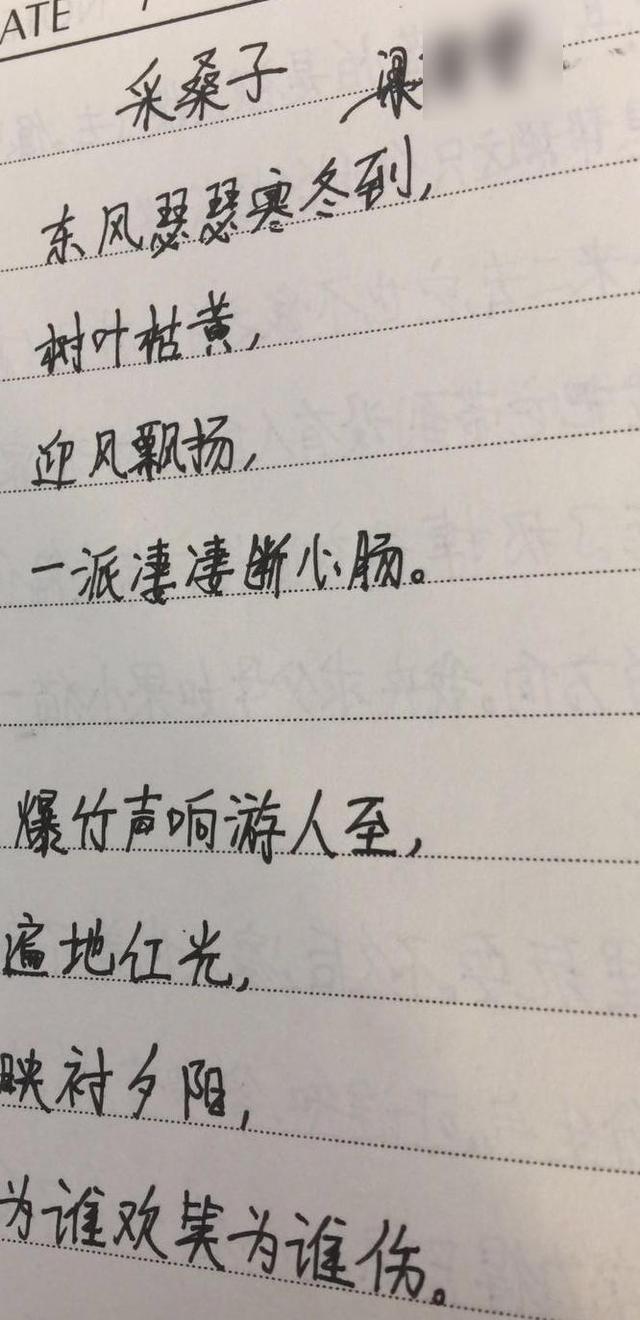 ATE
采桑子 梁
东风瑟瑟寒冬到,
树叶枯黄,
迎风飘扬,
一派凄凄断心肠。
爆竹声响游人至,
遍地红光,
映衬夕阳,
为谁欢笑为谁伤。